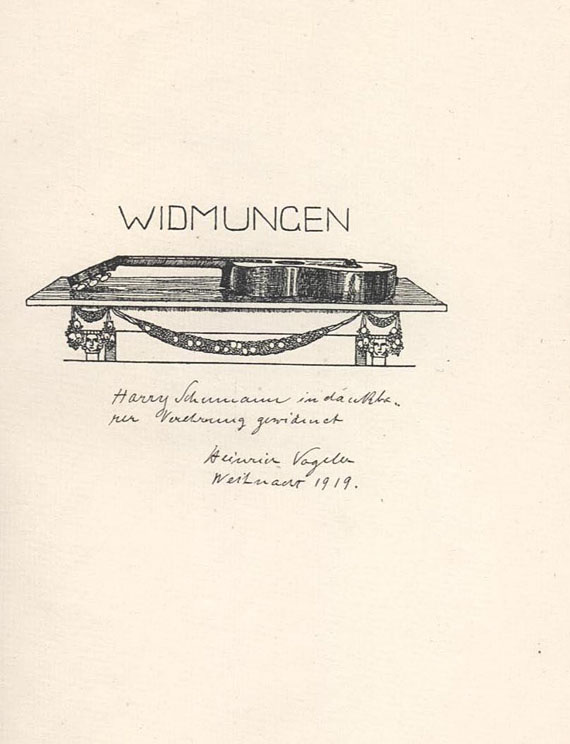 WIDMUNGEN
Harry Schumann in dankba-
rer Verehrung gewidmet
Heinrich Vogeler
Weihnacht 1919.